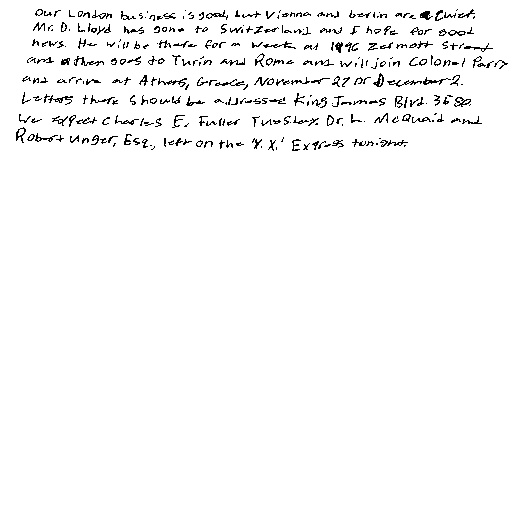 Our London business is good, but Vienna and berlin are quiet.
Mr. D. Lloyd has gone to Switzerland and I hope for good
news. He will be there for a week at 1996 Zermott Street
and then goes to Turin and Rome and will join Colonel Parry
and arrive at Athens, Greece, November 27 or December 2.
Letters there should be addressed King James Blvd. 3580.
We expect Charles E. Fuller Tuesday. Dr. L. McQuaid and
Robert Unger, Esq., left on the 'Y. X.' Express tonight.